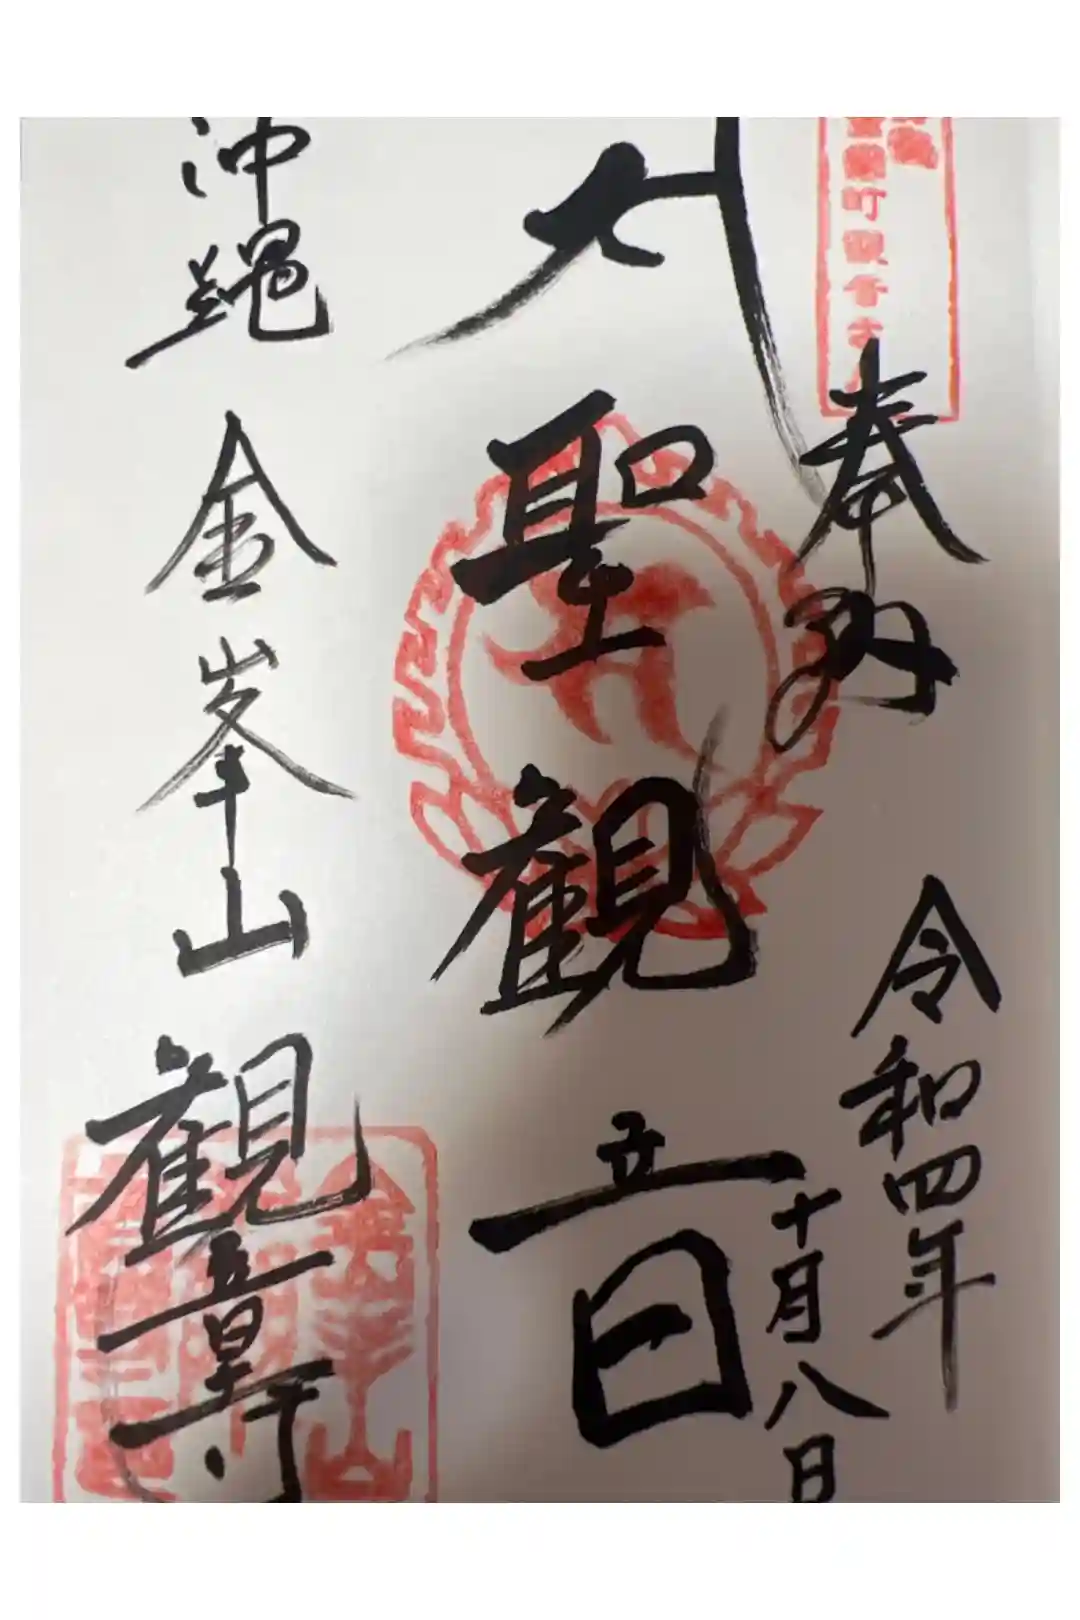 町觀音寺
奉納
令和四年
十月八日
聖観音
沖縄 金峯山 観音寺